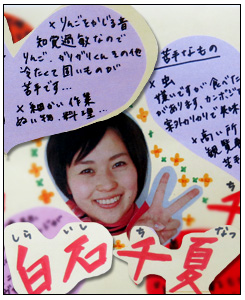 ×りんごをかじる音
知覚過敏なので
りんご、ガリガリくんその他
冷たくて固いものが
苦手です…
×細かい作業
ぬい物、料理…
苦手なもの
×虫
怖いですが食べた
があります。カンボジ
案外カリカリと美味
×高い所
観覧車
苦手
しら いし ち なつ
白石千夏